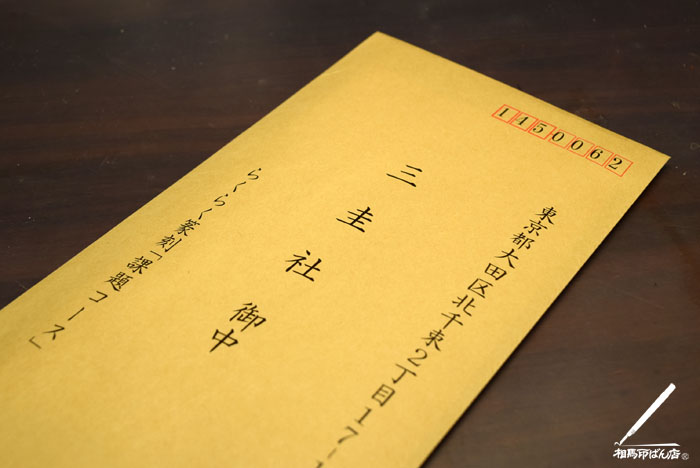 1450062
東京都大田区北千束2丁目17-1
三圭社 御中
らくらく篆刻「課題コース」
相馬印ばん店®